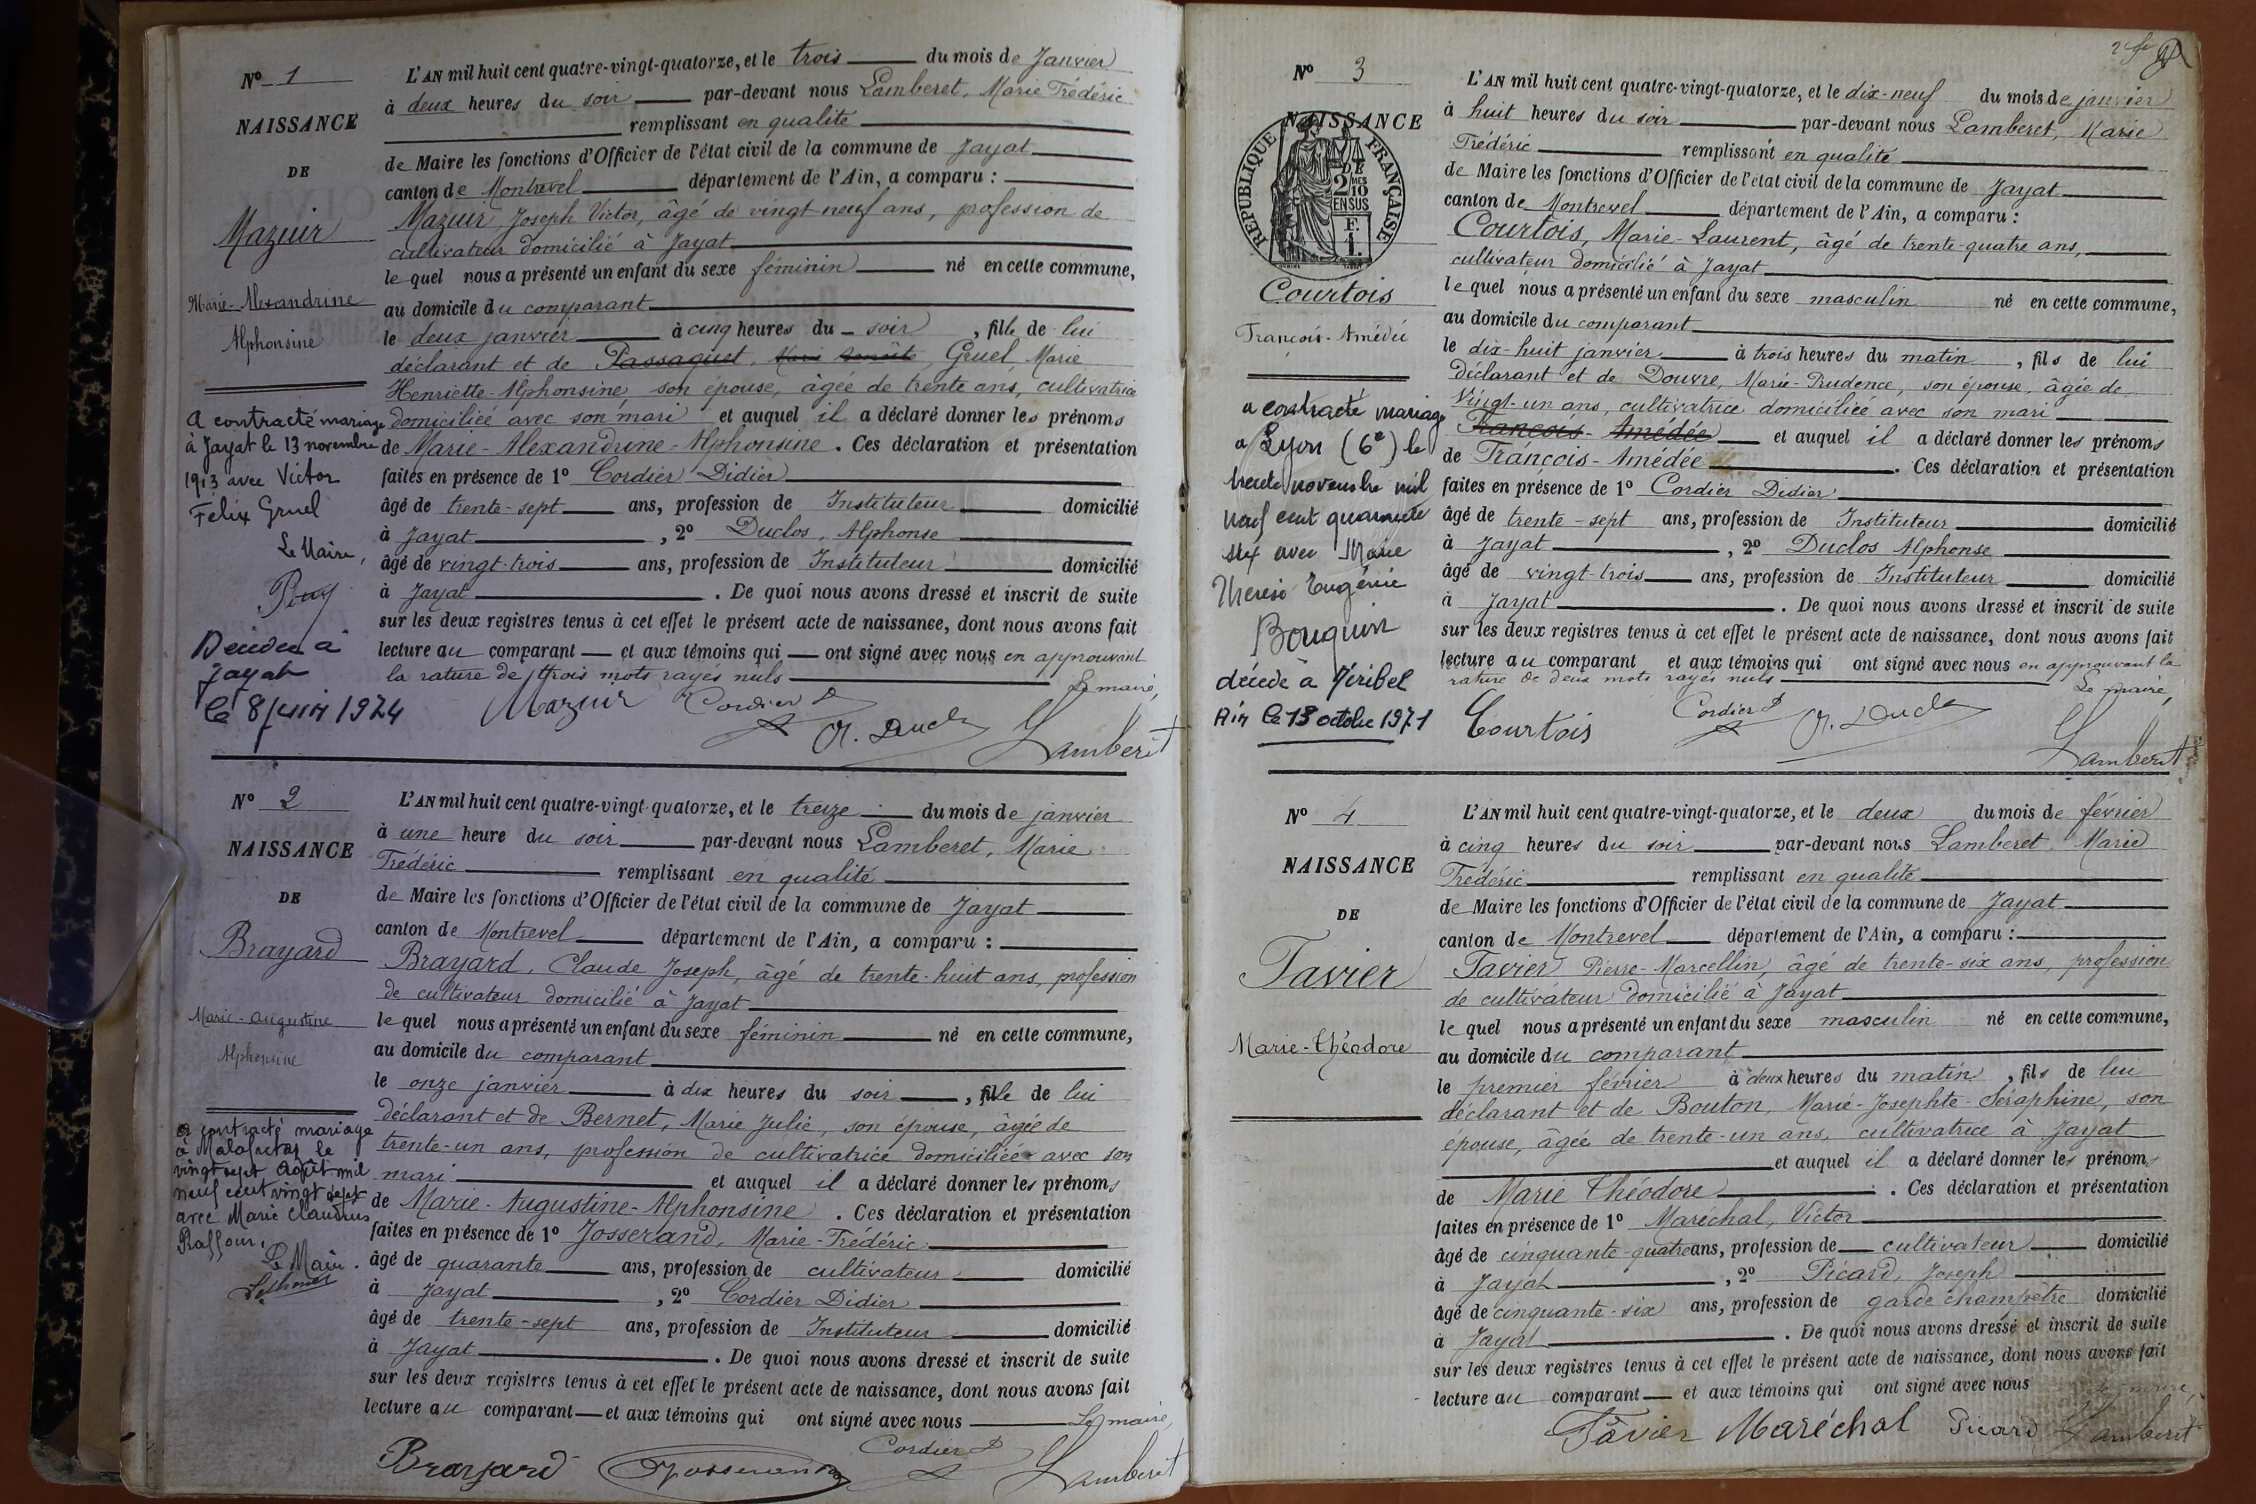 Nº 1
NAISSANCE
DE
Mazuir
Marie-Alexandrine
Alphonsine
a contracté mariage
à Jayat le 13 novembre
1913 avec Victor
Félix Gruel
Le Maire,
Décédée à
Jayat
le 8 juin 1974
L'AN mil huit cent quatre-vingt-quatorze, et le trois du mois de Janvier
à deux heures du soir par-devant nous Lamberet, Marie Frédéric
remplissant en qualité
de Maire les fonctions d'Officier de l'état civil de la commune de Jayat
canton de Montrevel département de l'Ain, a comparu :
Mazuir Joseph Victor, âgé de vingt neuf ans, profession de
cultivateur domicilié à Jayat
le quel nous a présenté un enfant du sexe féminin né en cette commune,
au domicile du comparant
le deux janvier à cinq heures du soir, fille de lui
déclarant et de Passaquet, Marie Benoite Gruel, Marie
Henriette-Alphonsine, son épouse, âgée de trente ans, cultivatrice
domiciliée avec son mari et auquel il a déclaré donner les prénoms
de Marie-Alexandrine-Alphonsine. Ces déclaration et présentation
faites en présence de 1º Cordier Didier
âgé de trente-sept ans, profession de Instituteur domicilié
à Jayat, 2º Duclos, Alphonse
âgé de vingt-trois ans, profession de Instituteur domicilié
à Jayat. De quoi nous avons dressé et inscrit de suite
sur les deux registres tenus à cet effet le présent acte de naissance, dont nous avons fait
lecture au comparant et aux témoins qui ont signé avec nous en approuvant
la rature de trois mots rayés nuls
Le maire,
Mazuir Cordier D A. Duclos Lamberet
Nº 2
NAISSANCE
DE
Brayard
Marie-Augustine
Alphonsine
a contracté mariage
à Malafretaz le
vingt sept août mil
neuf cent vingt sept
avec Marie Claudius
Le Maire.
L'AN mil huit cent quatre-vingt-quatorze, et le treize du mois de janvier
à une heure du soir par-devant nous Lamberet, Marie
Frédéric remplissant en qualité
de Maire les fonctions d'Officier de l'état civil de la commune de Jayat
canton de Montrevel département de l'Ain, a comparu :
Brayard, Claude Joseph, âgé de trente-huit ans, profession
de cultivateur domicilié à Jayat
le quel nous a présenté un enfant du sexe féminin né en cette commune,
au domicile du comparant
le onze janvier à dix heures du soir, fille de lui
déclarant et de Bernet, Marie Julie, son épouse, âgée de
trente-un ans, profession de cultivatrice domiciliée avec son
mari et auquel il a déclaré donner les prénoms
de Marie-Augustine-Alphonsine. Ces déclaration et présentation
faites en présence de 1º Josserand, Marie-Frédéric
âgé de quarante ans, profession de cultivateur domicilié
à Jayat, 2º Cordier Didier
âgé de trente-sept ans, profession de Instituteur domicilié
à Jayat. De quoi nous avons dressé et inscrit de suite
sur les deux registres tenus à cet effet le présent acte de naissance, dont nous avons fait
lecture au comparant et aux témoins qui ont signé avec nous
Le maire,
Brayard Josserand Cordier D Lamberet
Nº 3
NAISSANCE
RÉPUBLIQUE FRANÇAISE
2 10
EN SUS
F.
1.
Courtois
François-Amédée
a contracté mariage
à Lyon (6e) le
trente novembre mil
neuf cent quarante
six avec Marie
Thérèse Eugénie
Bouquin
décédé à Miribel
Ain le 13 octobre 1971
L'AN mil huit cent quatre-vingt-quatorze, et le dix-neuf du mois de janvier
à huit heures du soir par-devant nous Lamberet, Marie
Frédéric remplissant en qualité
de Maire les fonctions d'Officier de l'état civil de la commune de Jayat
canton de Montrevel département de l'Ain, a comparu :
Courtois, Marie-Laurent, âgé de trente-quatre ans,
cultivateur domicilié à Jayat
le quel nous a présenté un enfant du sexe masculin né en cette commune,
au domicile du comparant
le dix-huit janvier à trois heures du matin, fils de lui
déclarant et de Douvre, Marie-Prudence, son épouse, âgée de
vingt-un ans, cultivatrice domiciliée avec son mari
François-Amédée et auquel il a déclaré donner les prénoms
de François-Amédée. Ces déclaration et présentation
faites en présence de 1º Cordier Didier
âgé de trente-sept ans, profession de Instituteur domicilié
à Jayat, 2º Duclos Alphonse
âgé de vingt-trois ans, profession de Instituteur domicilié
à Jayat. De quoi nous avons dressé et inscrit de suite
sur les deux registres tenus à cet effet le présent acte de naissance, dont nous avons fait
lecture au comparant et aux témoins qui ont signé avec nous en approuvant la
rature de deux mots rayés nuls
Le maire,
Courtois Cordier D A. Duclos Lamberet
Nº 4
NAISSANCE
DE
Favier
Marie-Théodore
L'AN mil huit cent quatre-vingt-quatorze, et le deux du mois de février
à cinq heures du soir par-devant nous Lamberet Marie
Frédéric remplissant en qualité
de Maire les fonctions d'Officier de l'état civil de la commune de Jayat
canton de Montrevel département de l'Ain, a comparu :
Favier Pierre-Marcellin, âgé de trente-six ans, profession
de cultivateur domicilié à Jayat
le quel nous a présenté un enfant du sexe masculin né en cette commune,
au domicile du comparant
le premier février à deux heures du matin, fils de lui
déclarant et de Bouton, Marie-Josephte-Séraphine, son
épouse, âgée de trente-un ans, cultivatrice à Jayat
et auquel il a déclaré donner les prénoms
de Marie Théodore. Ces déclaration et présentation
faites en présence de 1º Maréchal, Victor
âgé de cinquante-quatre ans, profession de cultivateur domicilié
à Jayat, 2º Picard, Joseph
âgé de cinquante-six ans, profession de garde champêtre domicilié
à Jayat. De quoi nous avons dressé et inscrit de suite
sur les deux registres tenus à cet effet le présent acte de naissance, dont nous avons fait
lecture au comparant et aux témoins qui ont signé avec nous
Le maire,
Favier Maréchal Picard Lamberet